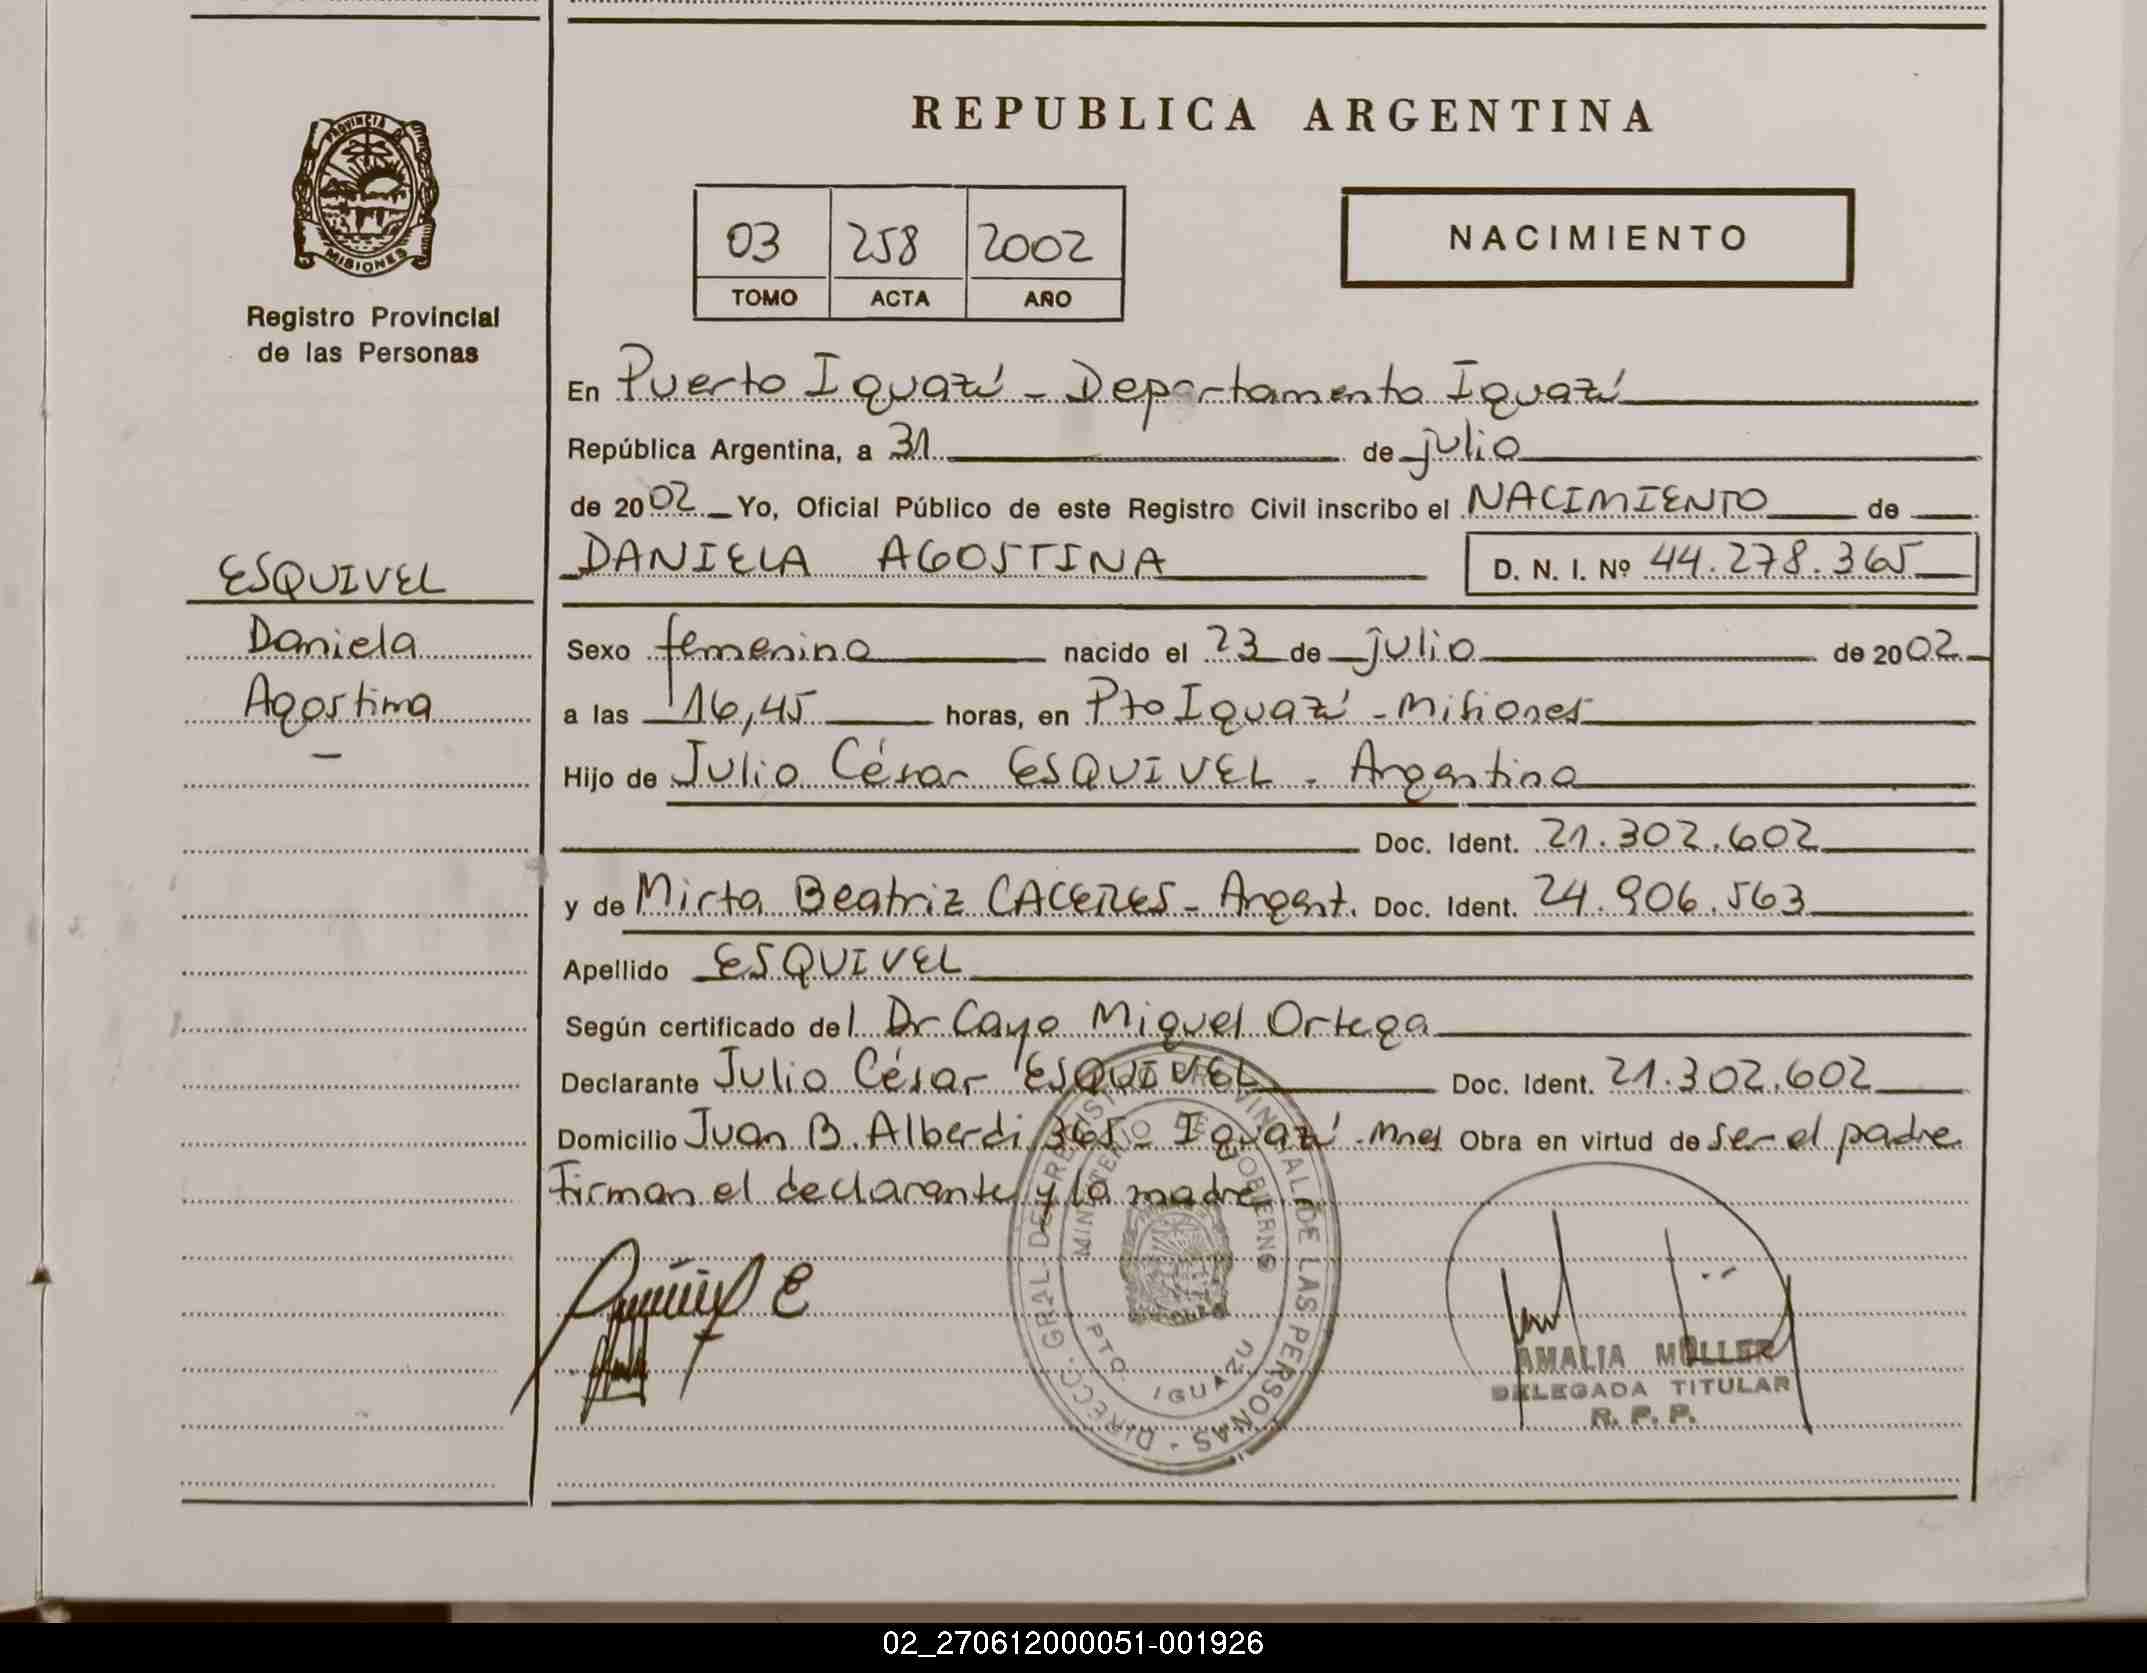 PROVINCIA DE
MISIONES
Registro Provincial
de las Personas
ESQUIVEL
Daniela
Agostina
REPUBLICA ARGENTINA
03 258 2002
TOMO ACTA AÑO
NACIMIENTO
En Puerto Iguazú - Departamento Iguazú
República Argentina, a 31 de julio
de 2002 Yo, Oficial Público de este Registro Civil inscribo el NACIMIENTO de
DANIELA AGOSTINA D. N. I. Nº 44.278.365
Sexo femenino nacido el 23 de julio de 2002
a las 16,45 horas, en Pto Iguazú - Misiones
Hijo de Julio César ESQUIVEL - Argentino
Doc. Ident. 21.302.602
y de Mirta Beatriz CACERES - Argent. Doc. Ident. 24.906.563
Apellido ESQUIVEL
Según certificado del Dr Cayo Miguel Ortega
Declarante Julio César ESQUIVEL Doc. Ident. 21.302.602
Domicilio Juan B. Alberdi 365 - Iguazú - Mnes Obra en virtud de ser el padre
Firman el declarante y la madre
DIRECC. GRAL. DE REGISTRO PROVINCIAL DE LAS PERSONAS -
MINISTERIO DE GOBIERNO
PTO. IGUAZU
AMALIA MÜLLER
DELEGADA TITULAR
R. P. P.
02_270612000051-001926